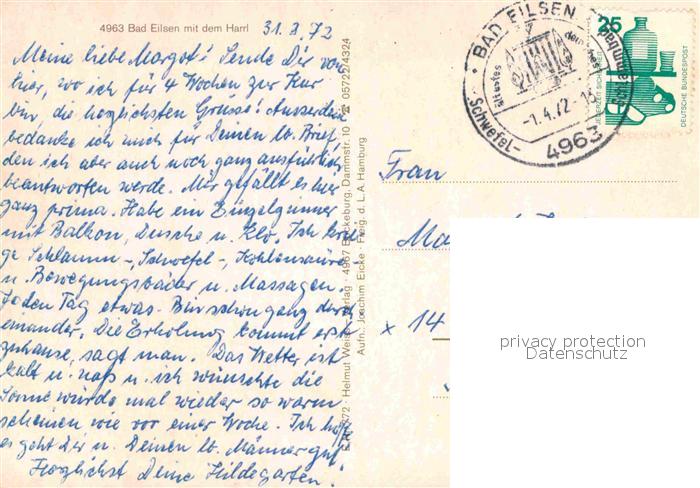 4963 Bad Eilsen mit dem Harrl
31.3.72
Meine liebe Margot! Sende Dir von
hier, wo ich für 4 Wochen zur Kur
bin, die herzlichsten Grüsse! Ausserdem
bedanke ich mich für Deinen lb. Brief
den ich aber auch noch ganz ausführlich
beantworten werde. Mir gefällt es hier
ganz prima. Habe ein Einzelzimmer
mit Balkon, Dusche u. Klo. Ich krie-
ge Schlamm-, Schwefel-, Kohlensäure-
u. Bewegungsbäder u. Massagen.
Jeden Tag etwas. Bin schon ganz durch
einander. Die Erholung kommt erst
zuhause, sagt man. Das Wetter ist
kalt u. naß u. ich wünschte die
Sonne würde mal wieder so warm
scheinen wie vor einer Woche. Ich hoffe
es geht Dir u. Deinen lb. Männer gut!
Herzlichst Deine Hildegarten!
372 · Helmut Weise Verlag · 4967 Bückeburg, Dammstr. 10 · ☎ 05722/4324
Aufn.: Joachim Eicke · Freig. d. L.A. Hamburg
BAD EILSEN
Schwefel-
-1.4.72
4963
25
JEDERZEIT SICHERHEIT
DEUTSCHE BUNDESPOST
Frau
x 14
privacy protection
Datenschutz